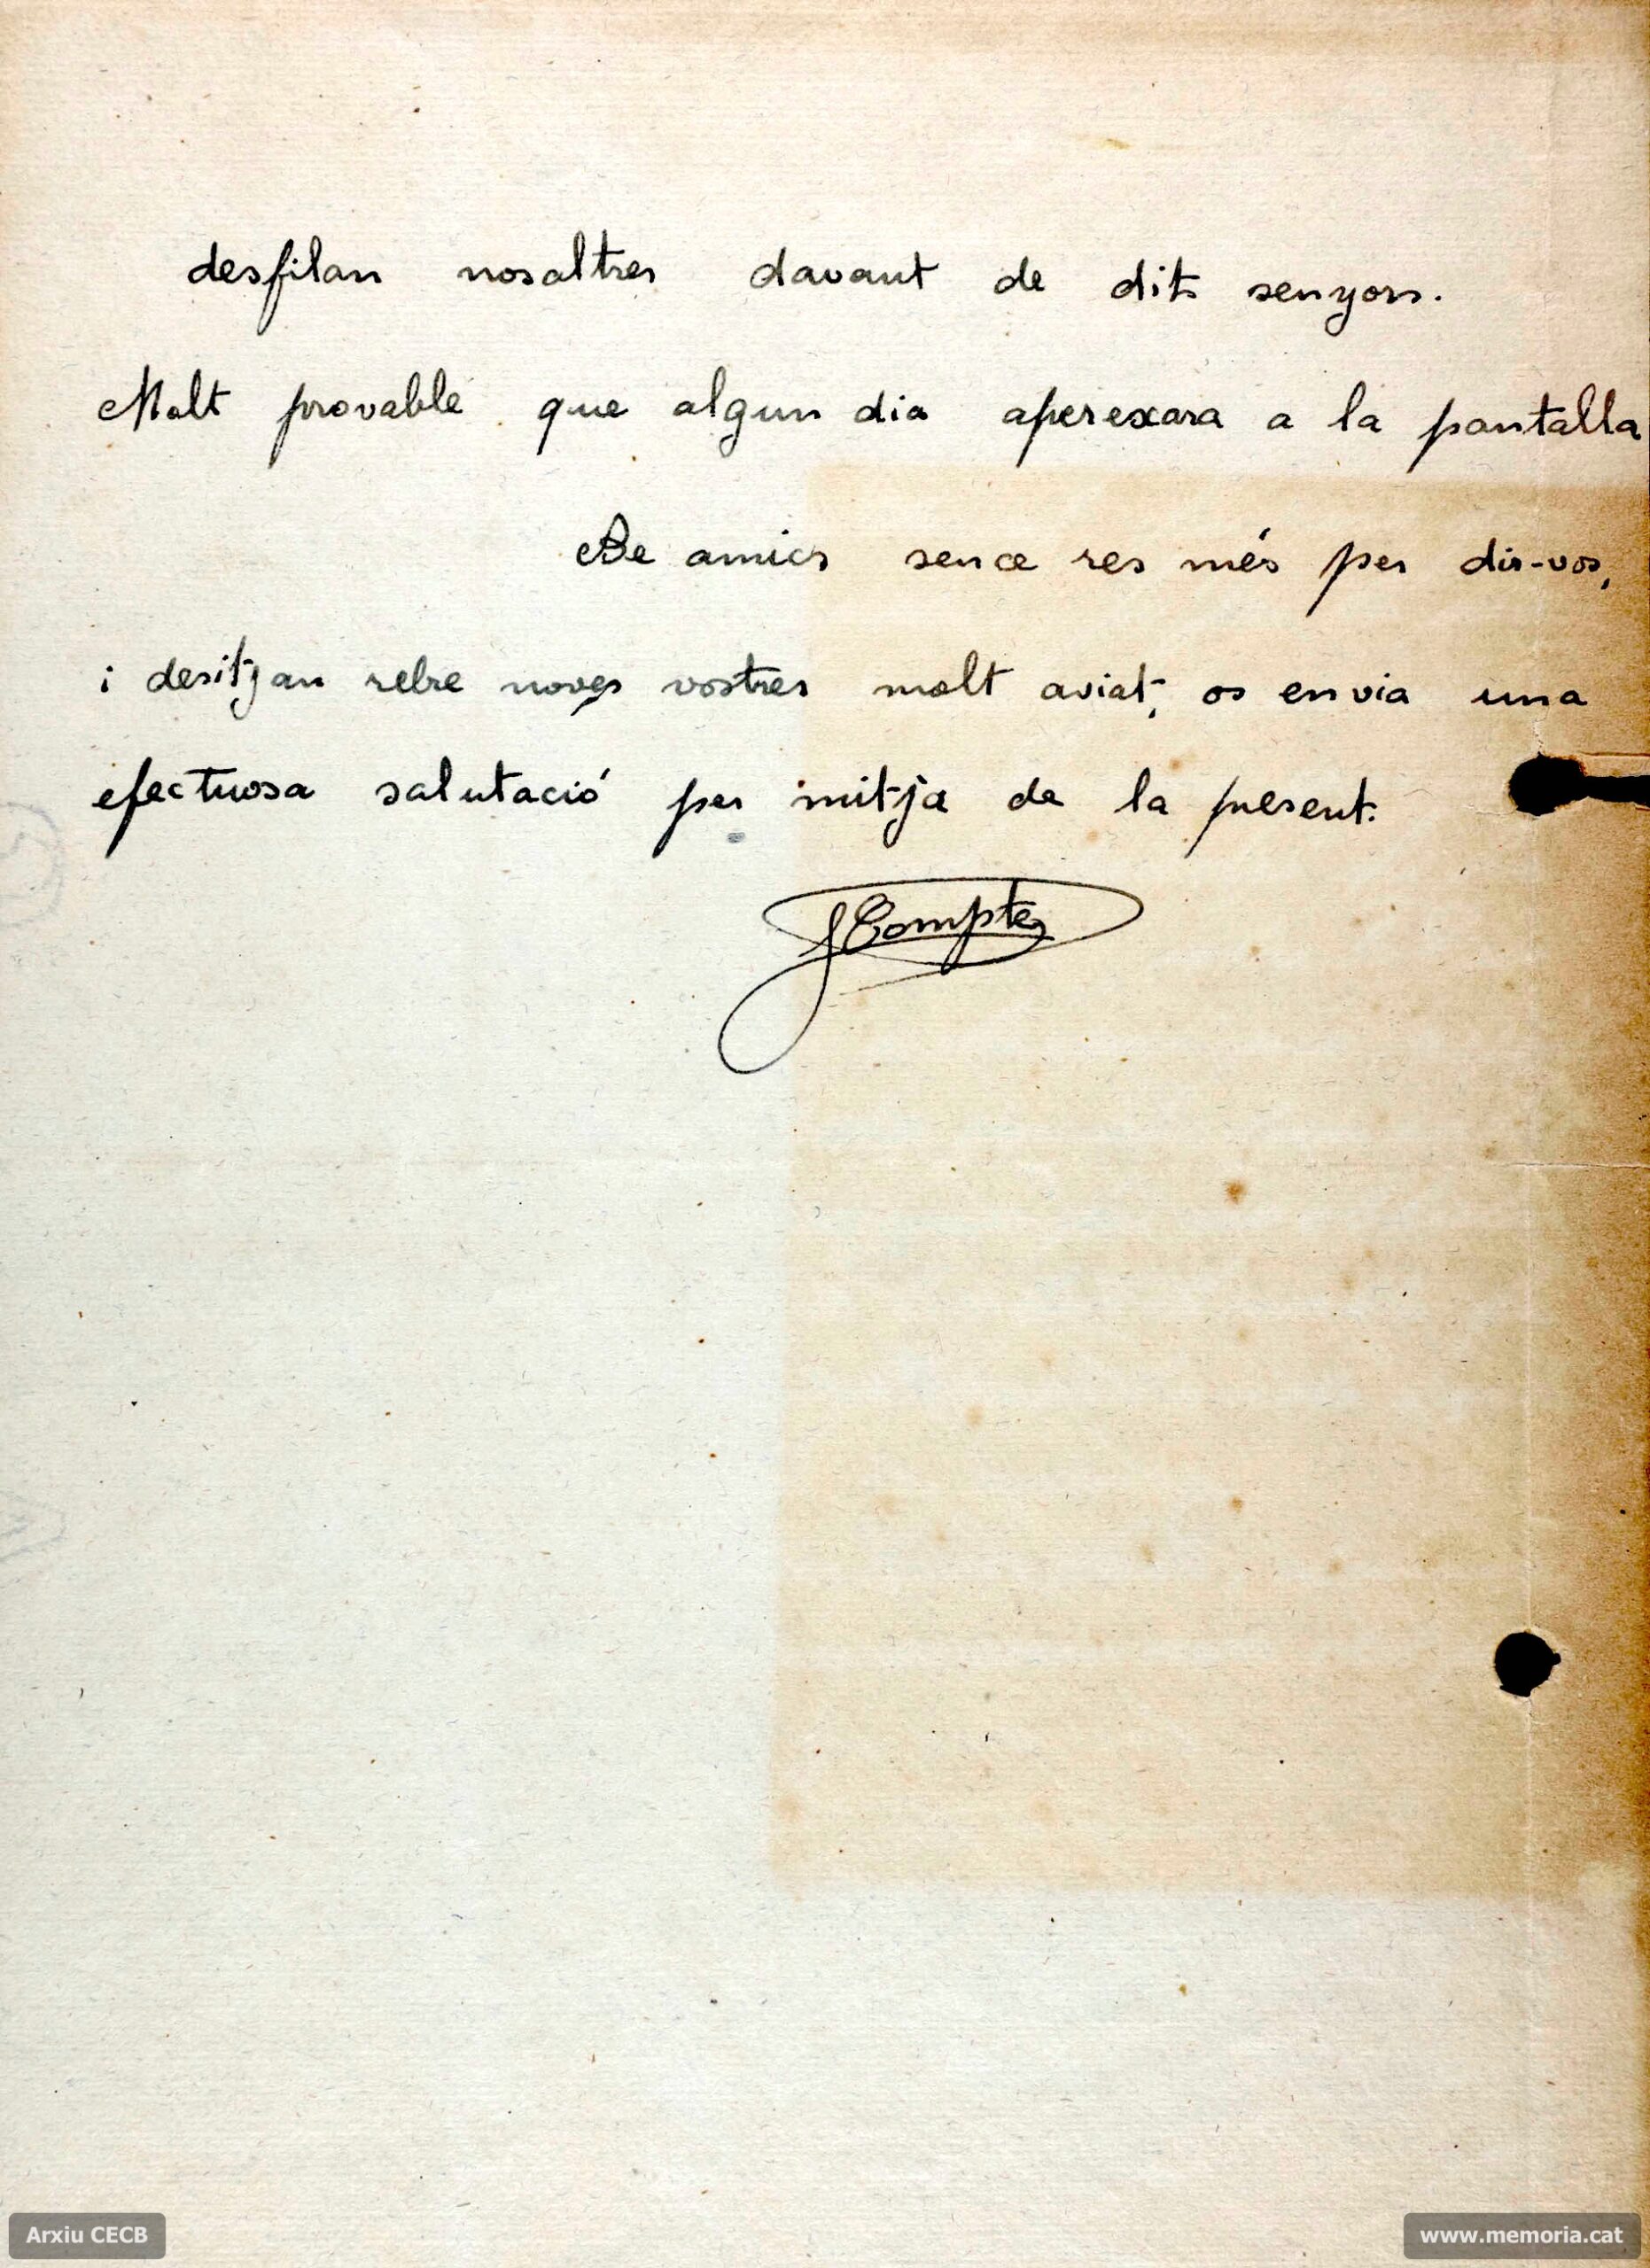 desfilan nosaltres davant de dits senyors.
Molt provable que algun dia aperexara a la pantalla
Be amics sence res més per dir-vos,
i desitjan rebre noves vostres molt aviat, os envia una
efectuosa salutació per mitja de la present.
J Compte
Arxiu CECB
www.memoria.cat